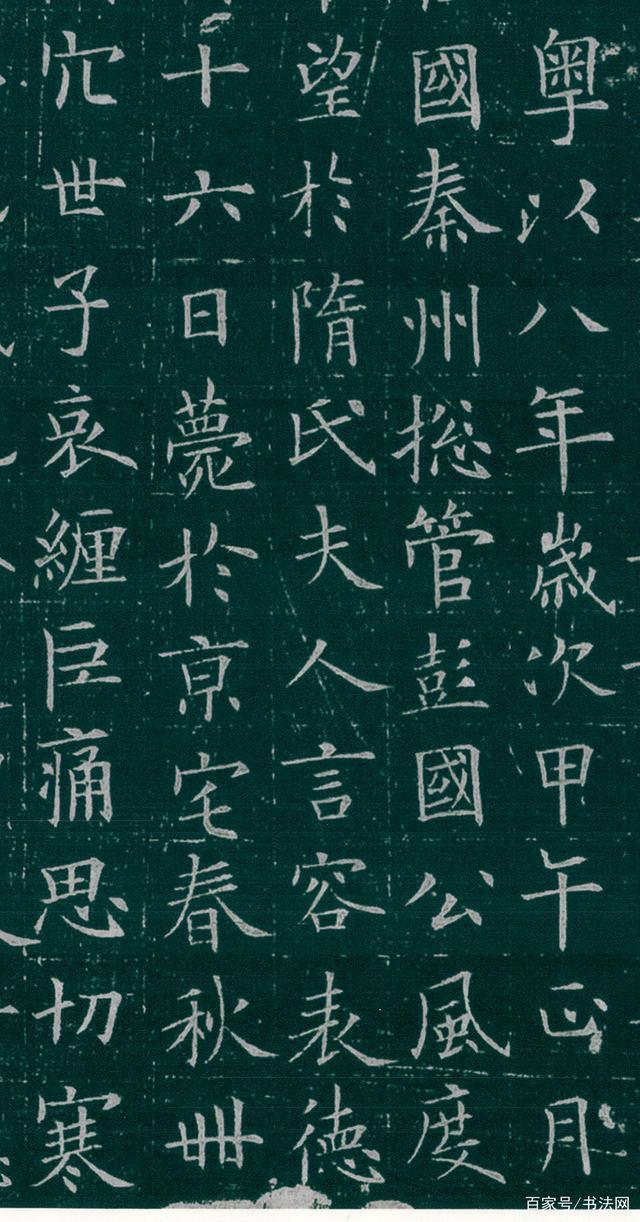 粤以八年歲次甲午正月
國秦州揔管彭國公風度
望於隋氏夫人言容表德
十六日薨於京宅春秋卌
穴世子哀纏巨痛思切寒
百家号/书法网